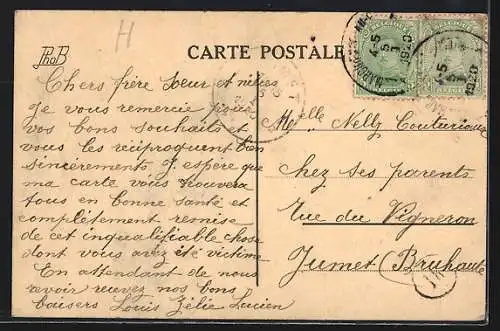 PhoB
H
CARTE POSTALE
Chers frère Sœur et nièces
Je vous remercie pour
vos bons souhaits et
vous les réciproquent bon
sincèrements. J'espère que
ma carte vous trouvera
tous en bonne santé et
complètement remise
de cet inqualifiable chose
dont vous avez été victime
En attendant de nous
revoir recevez nos bons
baisers Louis Zélie Lucien
Melle Nelly Couturiaux
chez ses parents
rue du Vigneron
Jumet (Bruhaute
4-5
5
1920
4-5
5
1920